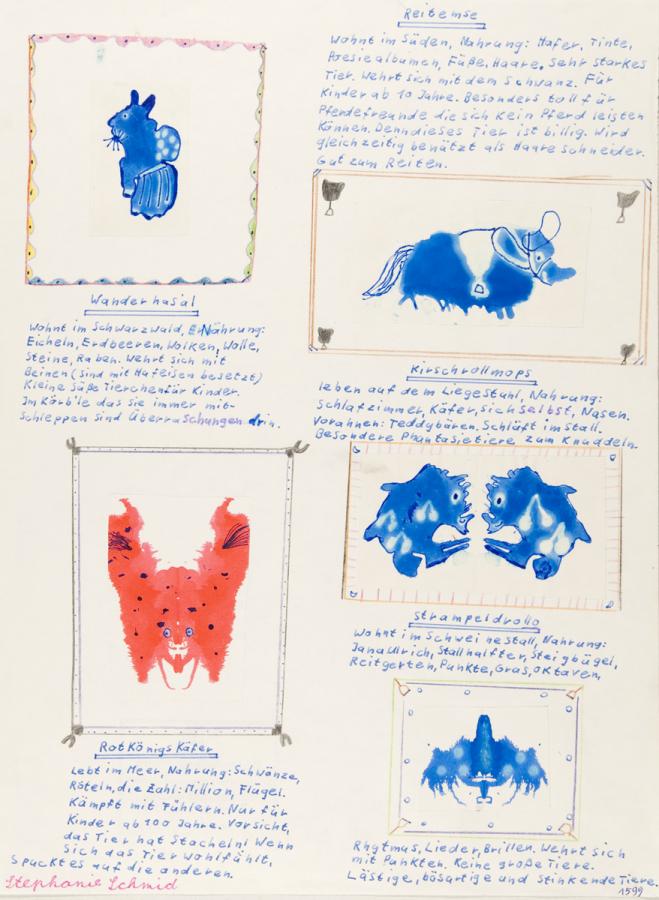 Wanderhasäl
Wohnt im Schwarzwald, Nährung:
Eicheln, Erdbeeren, Wolken, Wolle,
Steine, Raben. Wehrt sich mit
Beinen (sind mit Hafeisen besetzt)
Kleine Süße Tierchen für Kinder.
Im Körble das sie immer mit-
schleppen sind Überraschungen drin.
RotKönigsKäfer
Lebt im Meer, Nahrung: Schwänze,
Röteln, die Zahl: Million, Flügel.
Kämpft mit Fühlern. Nur für
Kinder ab 100 Jahre. Vorsicht,
das Tier hat Stacheln! Wenn
sich das Tier wohlfühlt,
spuckt es auf die anderen.
Stephanie Schmid
Reitemse
Wohnt im Süden, Nahrung: Hafer, Tinte,
Poesiealbumen, Füße, Haare, sehr starkes
Tier. Wehrt sich mit dem Schwanz. Für
Kinder ab 10 Jahre. Besonders toll für
Pferdefreunde die sich Kein Pferd leisten
Können. Denn dieses Tier ist billig. Wird
gleichzeitig benützt als Haareschneider.
Gut zum Reiten.
Kirschrollmops
leben auf dem Liegestuhl, Nahrung:
Schlafzimmer, Käfer, sich selbst, Nasen.
Vorahnen: Teddybären. Schläft im Stall.
Besondere Phantasietiere zum Knuddeln.
Strampeldrollo
Wohnt im Schweinestall, Nahrung:
Jana Ulrich, Stallhalfter, Steigbügel,
Reitgerten, Punkte, Gras, Oktaven,
Rhytmus, Lieder, Brillen. Wehrt sich
mit Punkten. Keine große Tiere.
Lästige, bösartige und stinkende Tiere.
1599